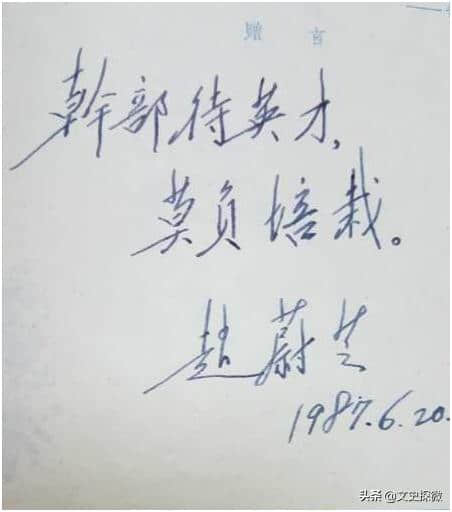 贈言
幹部待英才，
莫負培栽。
趙蔚芝
1987.6.20.
头条@文史探微